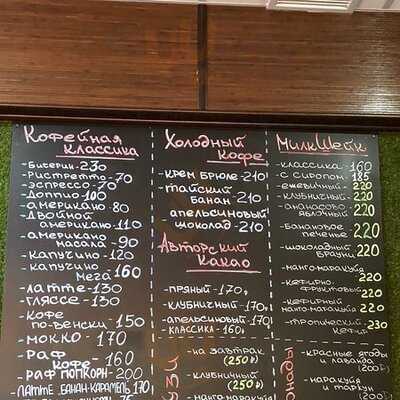 Кофейная
классика
-Бичерин-230
-Ристретто-70
-эспрессо-70
-Доппио 100
-американо 80
-Двойной
американо-110
-американо
масала-90
-капучино-120
-капучино
мега 160
-латте-130
-глясse-130
-кофе
по-венски-150
-мокко-170
-раф
кофе-160
-раф попкорн-200
-латте банан-карамель 170
Холодный
кофе
-крем брюле-210
-тайский
банан-210
-апельсиновый
шоколад-210
Авторский
какао
-пряный-170
-клубничный-170
-апельсиновый-170
-классика-160
-на завтрак
(250₽)
-клубничный
(250₽)
-манго-маракуйя
МилкШейк
-классика-160
-с сиропом-185
-ежевичный-220
-клубничный-220
-ананасово
яблочный-220
-банановое
печенье-220
-шоколадный
брауни-220
-манго-маракуйя
220
-кефирно
фруктовый
220
-кефирный
манго-маракуйя 220
-тропический
кефир-230
-красные ягоды
и лаванда
(200₽)
-маракуйя
и тархун
(200₽)